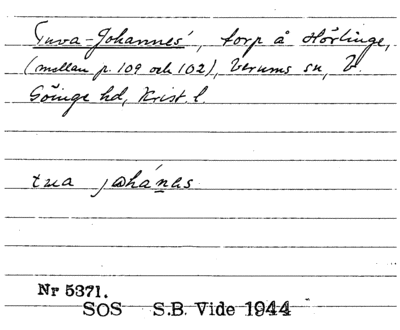 Tuva-Johannes', torp å Hörlinge,
(mellan p. 109 och 102), Verums sn, V.
Göinge hd, Krist. l.
tua johánas
Nr 5371.
SOS S.B. Vide 1944